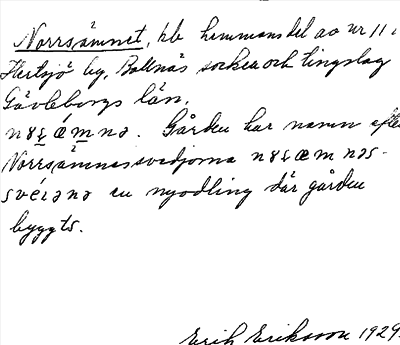 Norrsämnet, hb hemmansdel av nr 11 i
Hertsjö by, Bollnäs socken och tingslag
Gävleborgs län.
Gården har namn efter
Norrsämnessvedjorna
en nyodling där gården
byggts.
Erik Eriksson 1929.